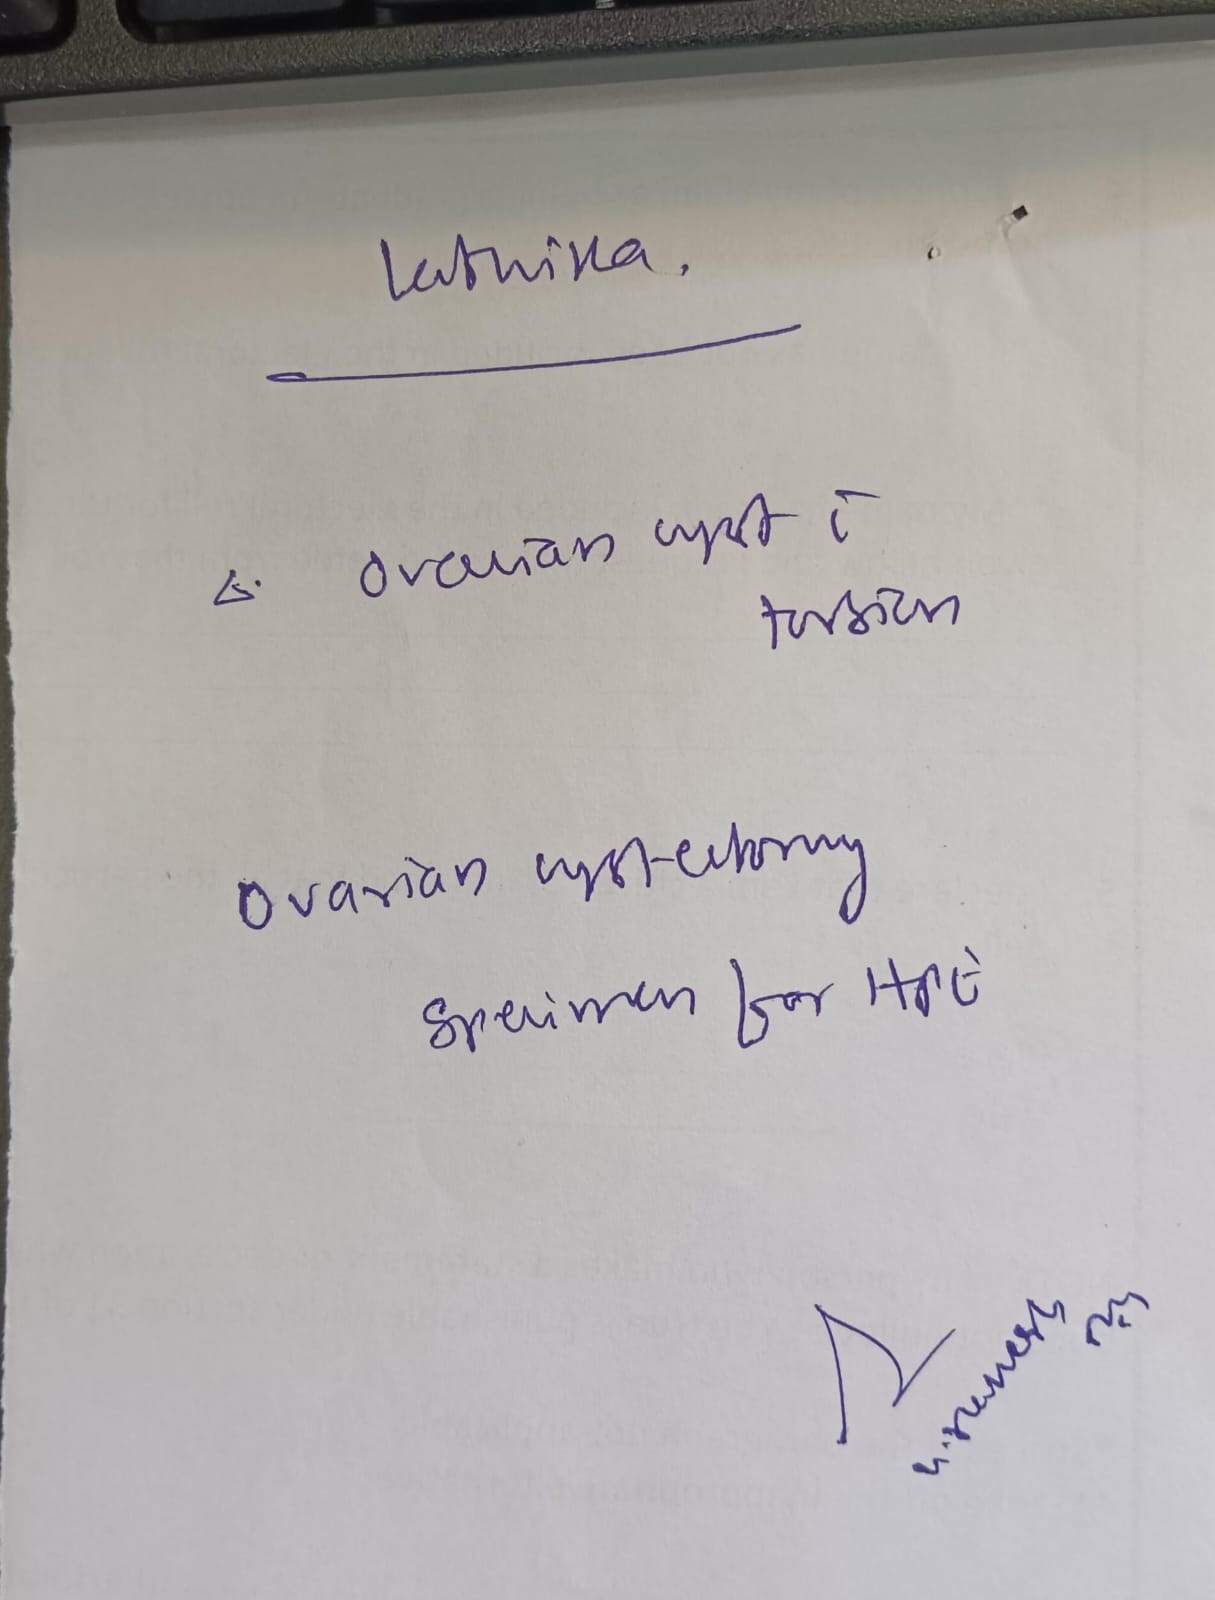 Lathika.
Δ. Ovarian cyst c̄
torsion
Ovarian cyst-ectomy
Specimen for HPE